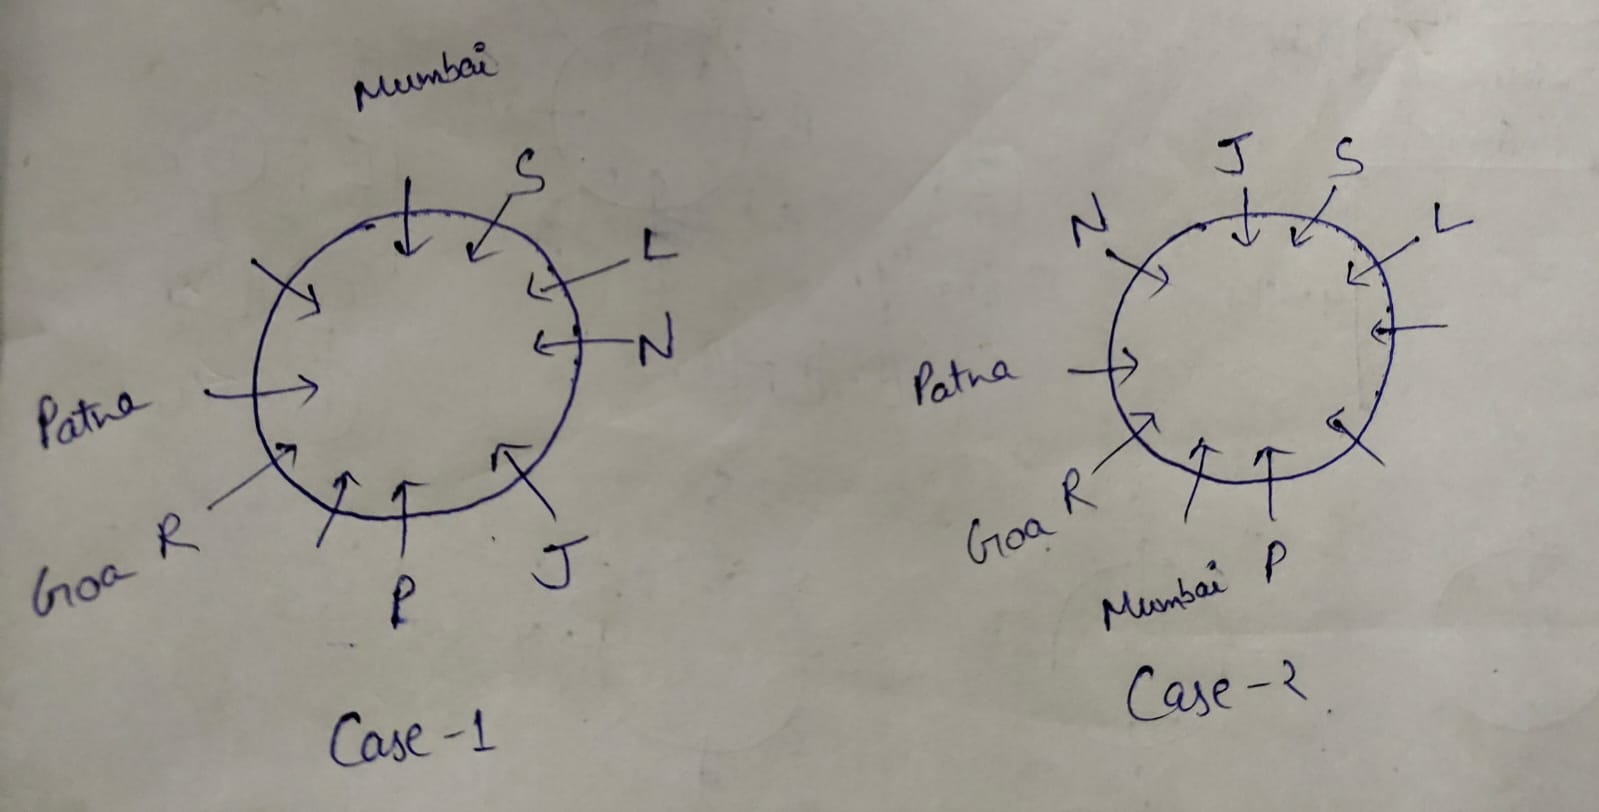 Mumbai
S
L
N
J
P
R
Goa
Patna
Case-1
J
S
N
L
Patna
R
Goa
Mumbai
P
Case-2